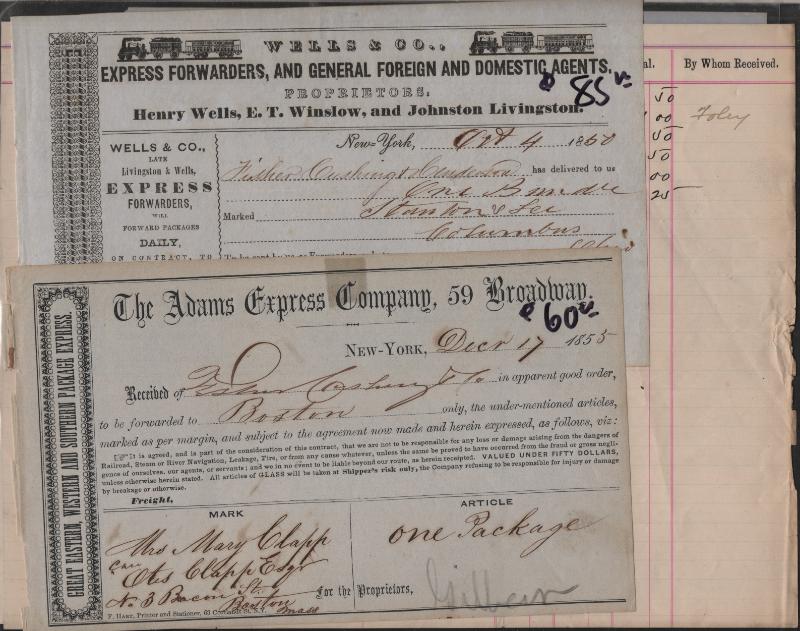 WELLS & CO.,
EXPRESS FORWARDERS, AND GENERAL FOREIGN AND DOMESTIC AGENTS.
PROPRIETORS:
Henry Wells, E. T. Winslow, and Johnston Livingston.
85
New-York, Oct 4 1850
WELLS & CO.,
LATE
Livingston & Wells,
EXPRESS
FORWARDERS,
WILL
FORWARD PACKAGES
DAILY,
ON CONTRACT, TO
Cushing & has delivered to us
One Bundle
Marked Stanton & Lee
Columbus
Ohio
al. By Whom Received.
50
00 Foley
50
50
00
25
GREAT EASTERN, WESTERN AND SOUTHERN PACKAGE EXPRESS.
The Adams Express Company, 59 Broadway.
60
NEW-YORK, Decr 17 1855
Received of Cushing & Co in apparent good order,
to be forwarded to Boston only, the under-mentioned articles,
marked as per margin, and subject to the agreement now made and herein expressed, as follows, viz:
It is agreed, and is part of the consideration of this contract, that we are not to be responsible for any loss or damage arising from the dangers of
Railroad, Steam or River Navigation, Leakage, Fire, or from any cause whatever, unless the same be proved to have occurred from the fraud or gross negli-
gence of ourselves, our agents, or servants; and we in no event to be liable beyond our route, as herein receipted. VALUED UNDER FIFTY DOLLARS,
unless otherwise herein stated. All articles of GLASS will be taken at Shipper's risk only, the Company refusing to be responsible for injury or damage
by breakage or otherwise.
Freight,
MARK ARTICLE
Mrs Mary Clapp one Package
Care
Otis Clapp Esqr
No 3 Bacon St.
Boston
Mass
For the Proprietors,
F. HART, Printer and Stationer, 63 Cortlandt St. N.Y.